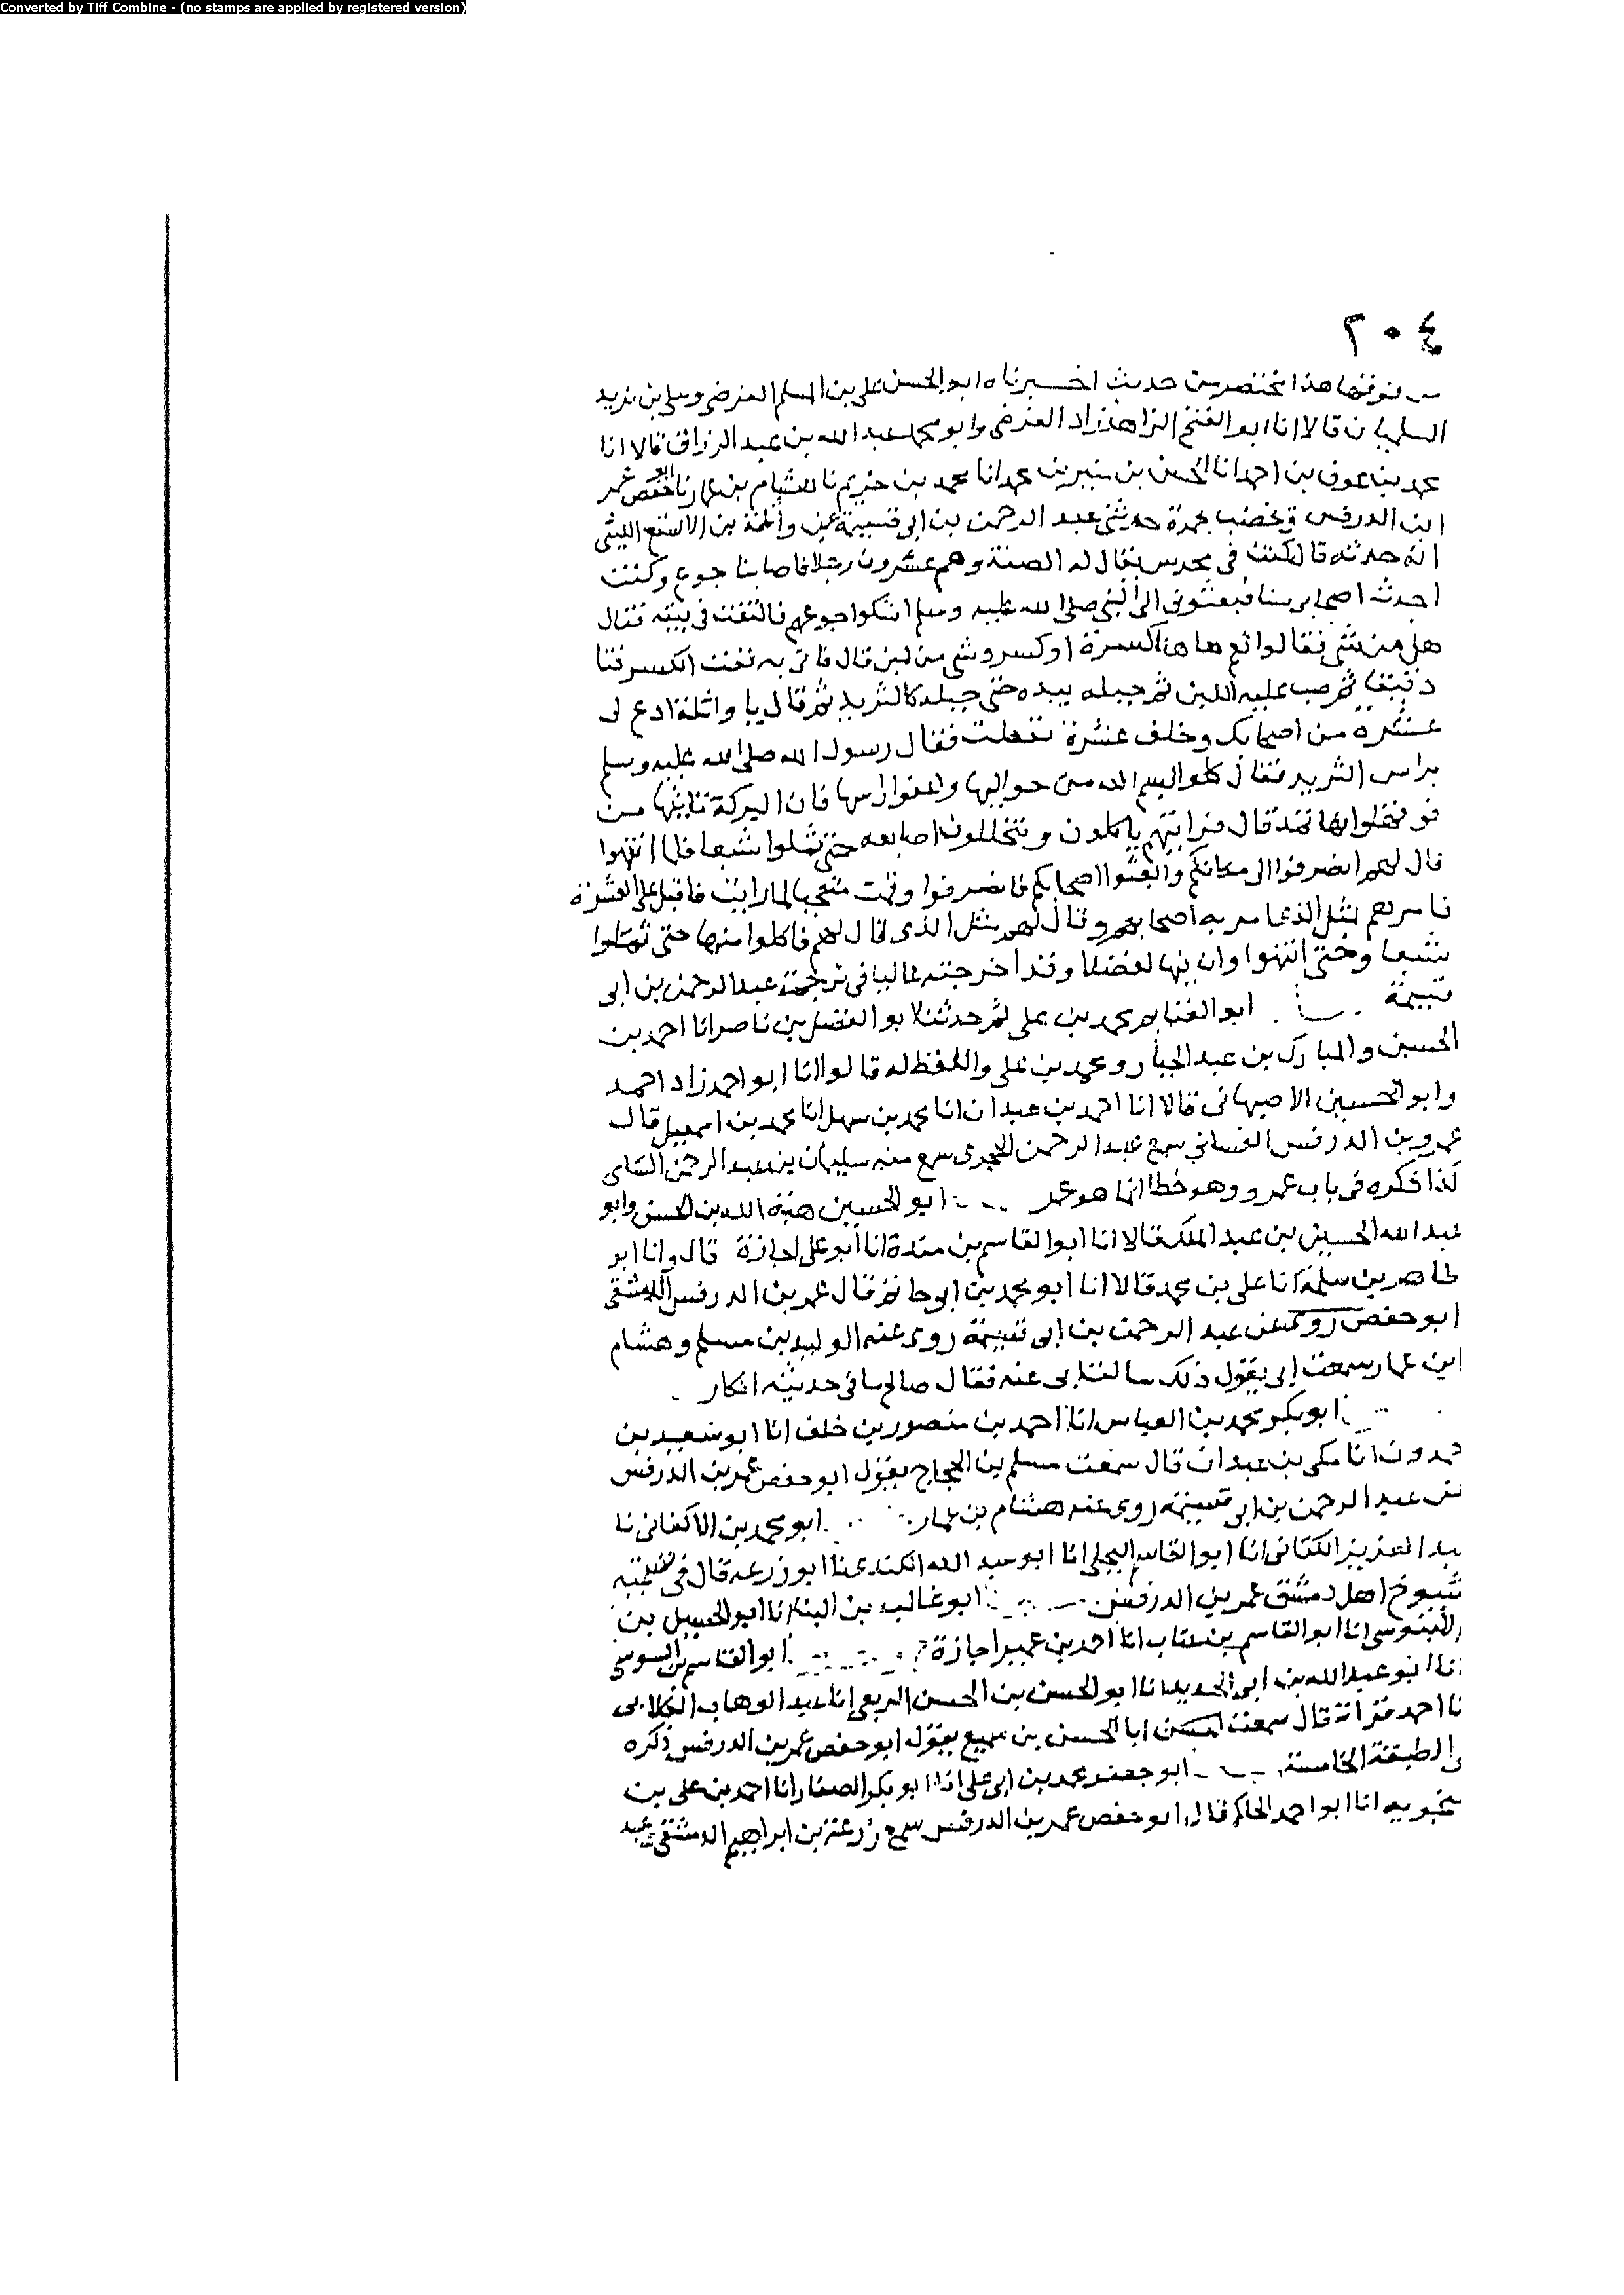 Converted by Tiff Combine - (no stamps are applied by registered version)
٢٠٤
من فوقها هذا مختصر من حديث اخبرناه ابو الحسن علي بن المسلم الفرضي وعلي بن زيد
السلميان قالا انا ابو الفتح الزاهد زاد الفرضي وابو محمد عبد الله بن عبد الرزاق قالا انا
محمد بن عوف بن احمد انا الحسن بن منير بن محمد انا محمد بن خريم نا هشام بن عمار نا ابو حفص عمر
ابن الدرفس يخضب بحمرة حدثني عبد الرحمن بن ابي قسيمة عن واثلة بن الاسقع الليثي
انه حدثه قال كنت في محرس يقال له الصفة وهم عشرون رجلا فاصابنا جوع وكنت
احدث اصحابي سنا فبعثوني الى النبي صلى الله عليه وسلم اشكوا جوعهم فالتفت في بيته فقال
هل من شي فقالوا نعم هاهنا كسرة او كسر وشي من لبن قال فاتي به ففت الكسر فتا
دقيقا ثم صب عليه اللبن ثم جبله بيده حتى جبله كالثريد ثم قال يا واثلة ادع لي
عشرة من اصحابك وخلف عشرة ففعلت فقال رسول الله صلى الله عليه وسلم
براس الثريد فقال كلوا بسم الله من حواليها واعفوا راسها فان البركة تاتيها من
فوقها وانها تمد قال فرايتهم ياكلون ويتخللون اصابعه حتى تملوا شبعا فلما انتهوا
قال لهم انصرفوا الى مكانكم وابعثوا اصحابكم فانصرفوا وقمت متعجبا لما رايت فاقبل على العشرة
فامرهم بمثل الذي امر به اصحابهم وقال لهم مثل الذي قال لهم فاكلوا منها حتى تملوا
شبعا وحتى انتهوا وان فيها لفضلا وقد اخرجته عاليا في ترجمة عبد الرحمن بن ابي
قسيمة ابو الغنايم محمد بن علي ثم حدثنا ابو الفضل بن ناصر انا احمد بن
الحسين والمبارك بن عبد الجبار ومحمد بن علي واللفظ له قالوا انا ابو احمد زاد احمد
وابو الحسين الاصبهاني قالا انا احمد بن عبدان انا محمد بن سهل انا محمد بن اسمعيل قال
عمرو بن الدرفس الغساني سمع عبد الرحمن سمع منه سليمان بن عبد الرحمن الشامي
كذا ذكره في باب عمرو وهو خطا انما هو عمر ابو الحسين هبة الله بن الحسن وابو
عبد الله الحسين بن عبد الملك قالا انا ابو القاسم بن مندة انا ابو علي اجازة قال وانا ابو
طاهر بن سلمة انا علي بن محمد قالا انا ابو محمد بن ابي حاتم قال عمر بن الدرفس الدمشقي
ابو حفص روى عن عبد الرحمن بن ابي قسيمة روى عنه الوليد بن مسلم وهشام
ابن عمار سمعت ابي يقول ذلك سالت ابي عنه فقال صالح ما في حديثه انكار
ابو بكر محمد بن العباس انا احمد بن منصور بن خلف انا ابو سعيد بن
حمدون انا مكي بن عبدان قال سمعت مسلم بن الحجاج يقول ابو حفص عمر بن الدرفس
عن عبد الرحمن بن ابي قسيمة روى عنه هشام بن عمار ابو محمد بن الاكفاني نا
عبد العزيز الكتاني انا ابو القاسم البجلي انا ابو عبد الله الكندي نا ابو زرعة قال في تسمية
شيوخ اهل دمشق عمر بن الدرفس ابو غالب بن البنا انا ابو الحسين بن
الابنوسي انا ابو القاسم بن عتاب انا احمد بن عمير اجازة ابو القاسم بن السوسي
انا ابو عبد الله بن ابي الحديد انا ابو الحسن بن الحسن الربعي انا عبد الوهاب الكلابي
نا احمد قراة قال سمعت ابا الحسن بن سميع يقول ابو حفص عمر بن الدرفس ذكره
في الطبقة الخامسة ابو جعفر محمد بن ابي علي انا ابو بكر الصفار انا احمد بن علي بن
منجويه انا ابو احمد الحاكم قال ابو حفص عمر بن الدرفس سمع زرعة بن ابراهيم الدمشقي عبد